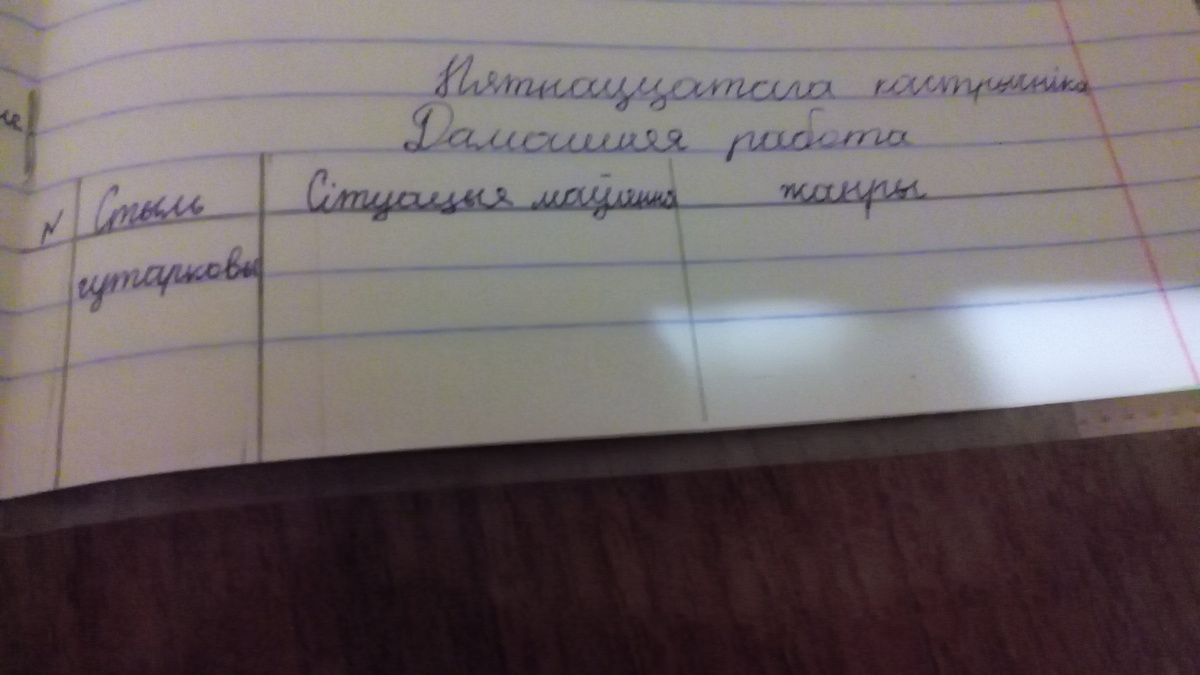 Пятнаццатага кастрычніка
Дамашняя работа
N Стыль Сітуацыя маўлення жанры
гутарковы